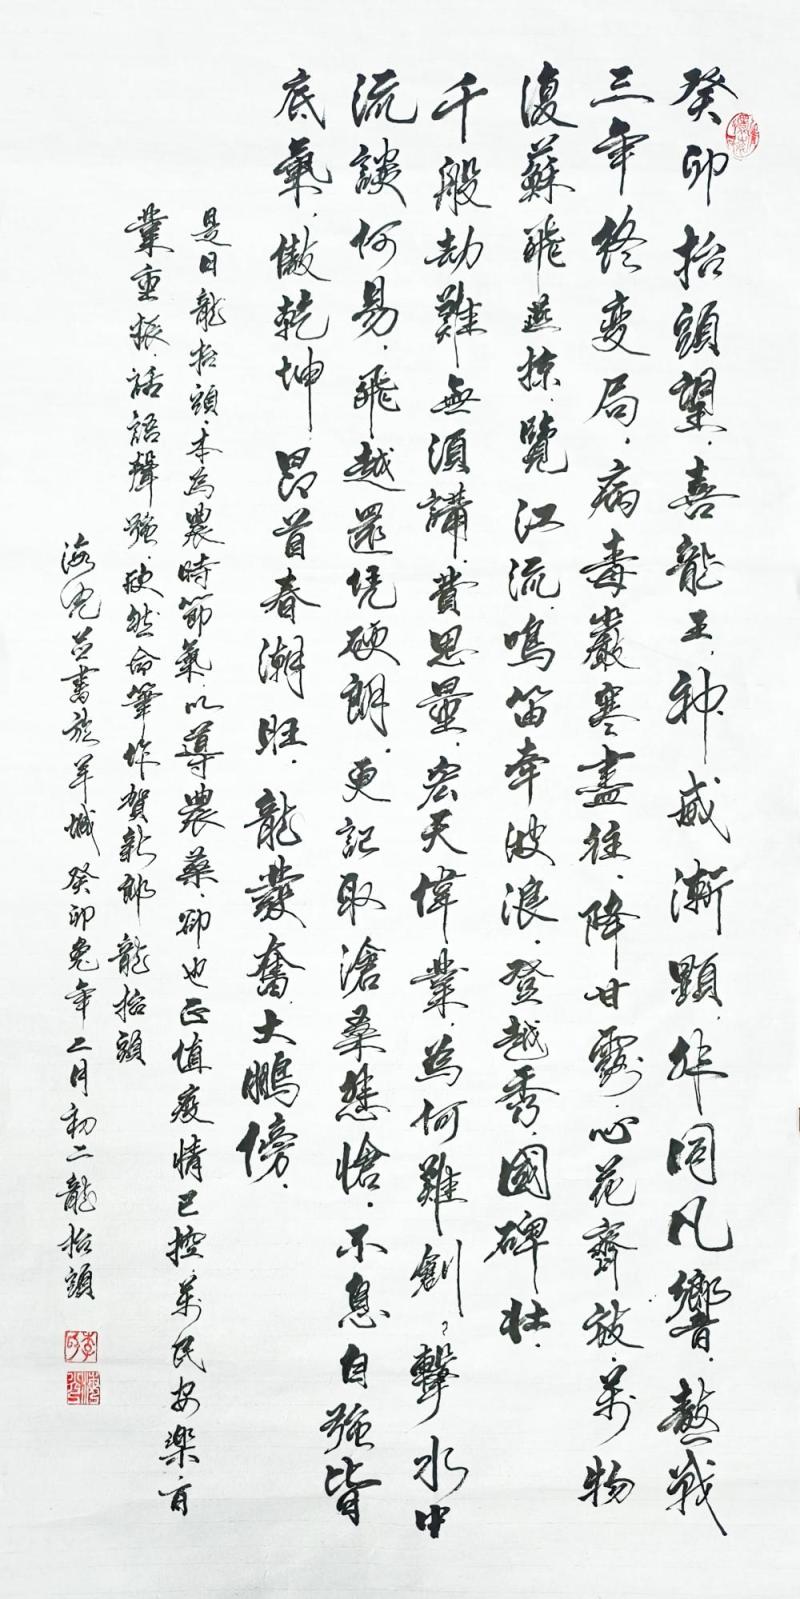 癸卯抬頭望.喜龍王.神威漸顯.非同凡響.鏖戰
三年終變局.病毒嚴寒盡往.降甘霧.心花齊放.萬物
復蘇飛燕掠.覽江流.鳴笛牽波浪.登越秀.國碑壯.
千般劫難無須講.費思量.宏天偉業.為何難創.擊水中
流談何易.飛越還凭硬朗.更記取滄桑悲愴.不息自強皆
底氣.傲乾坤.昂首春潮旺.龍發奮.大鵬傍.
是日龍抬頭.本為農時節氣.以導農桑.卻也正值疫情已控.萬民安樂.百
業重振.話語聲強.欣然命筆作賀新郎龍抬頭
海光并書於羊城癸卯兔年二月初二龍抬頭